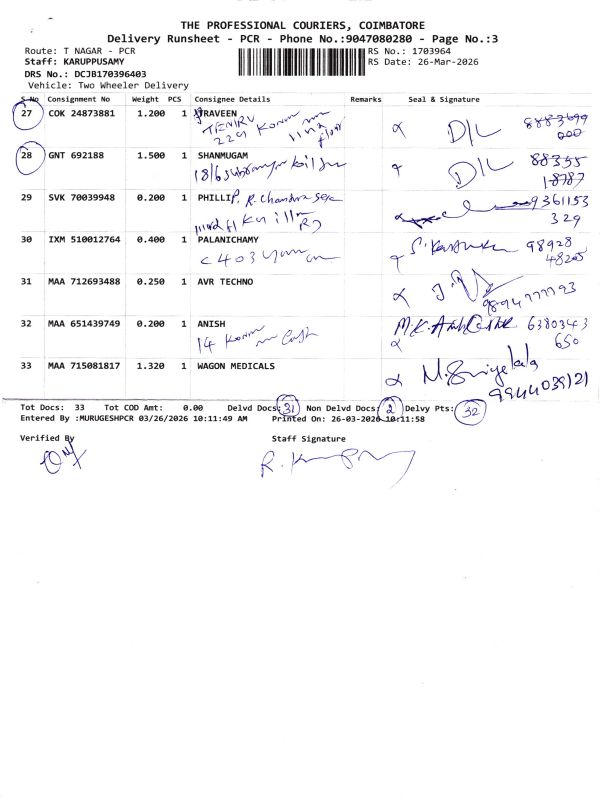 THE PROFESSIONAL COURIERS, COIMBATORE
Delivery Runsheet - PCR - Phone No.:9047080280 - Page No.:3
Route: T NAGAR - PCR RS No.: 1703964
Staff: KARUPPUSAMY RS Date: 26-Mar-2026
DRS No.: DCJB170396403
Vehicle: Two Wheeler Delivery
S No Consignment No Weight PCS Consignee Details Remarks Seal & Signature
27 COK 24873881 1.200 1 PRAVEEN D/L 8883699
2221 000
28 GNT 692188 1.500 1 SHANMUGAM D/L 88355
18/6 18787
29 SVK 70039948 0.200 1 PHILLIP, R. Chandra 9361153
329
30 IXM 510012764 0.400 1 PALANICHAMY 98928
C 403 48205
31 MAA 712693488 0.250 1 AVR TECHNO
9894777793
32 MAA 651439749 0.200 1 ANISH M.K. 6380343
14 650
33 MAA 715081817 1.320 1 WAGON MEDICALS
9944039121
Tot Docs: 33 Tot COD Amt: 0.00 Delvd Docs: 31 Non Delvd Docs: 2 Delvy Pts: 32
Entered By :MURUGESHPCR 03/26/2026 10:11:49 AM Printed On: 26-03-2026 10:11:58
Verified By Staff Signature